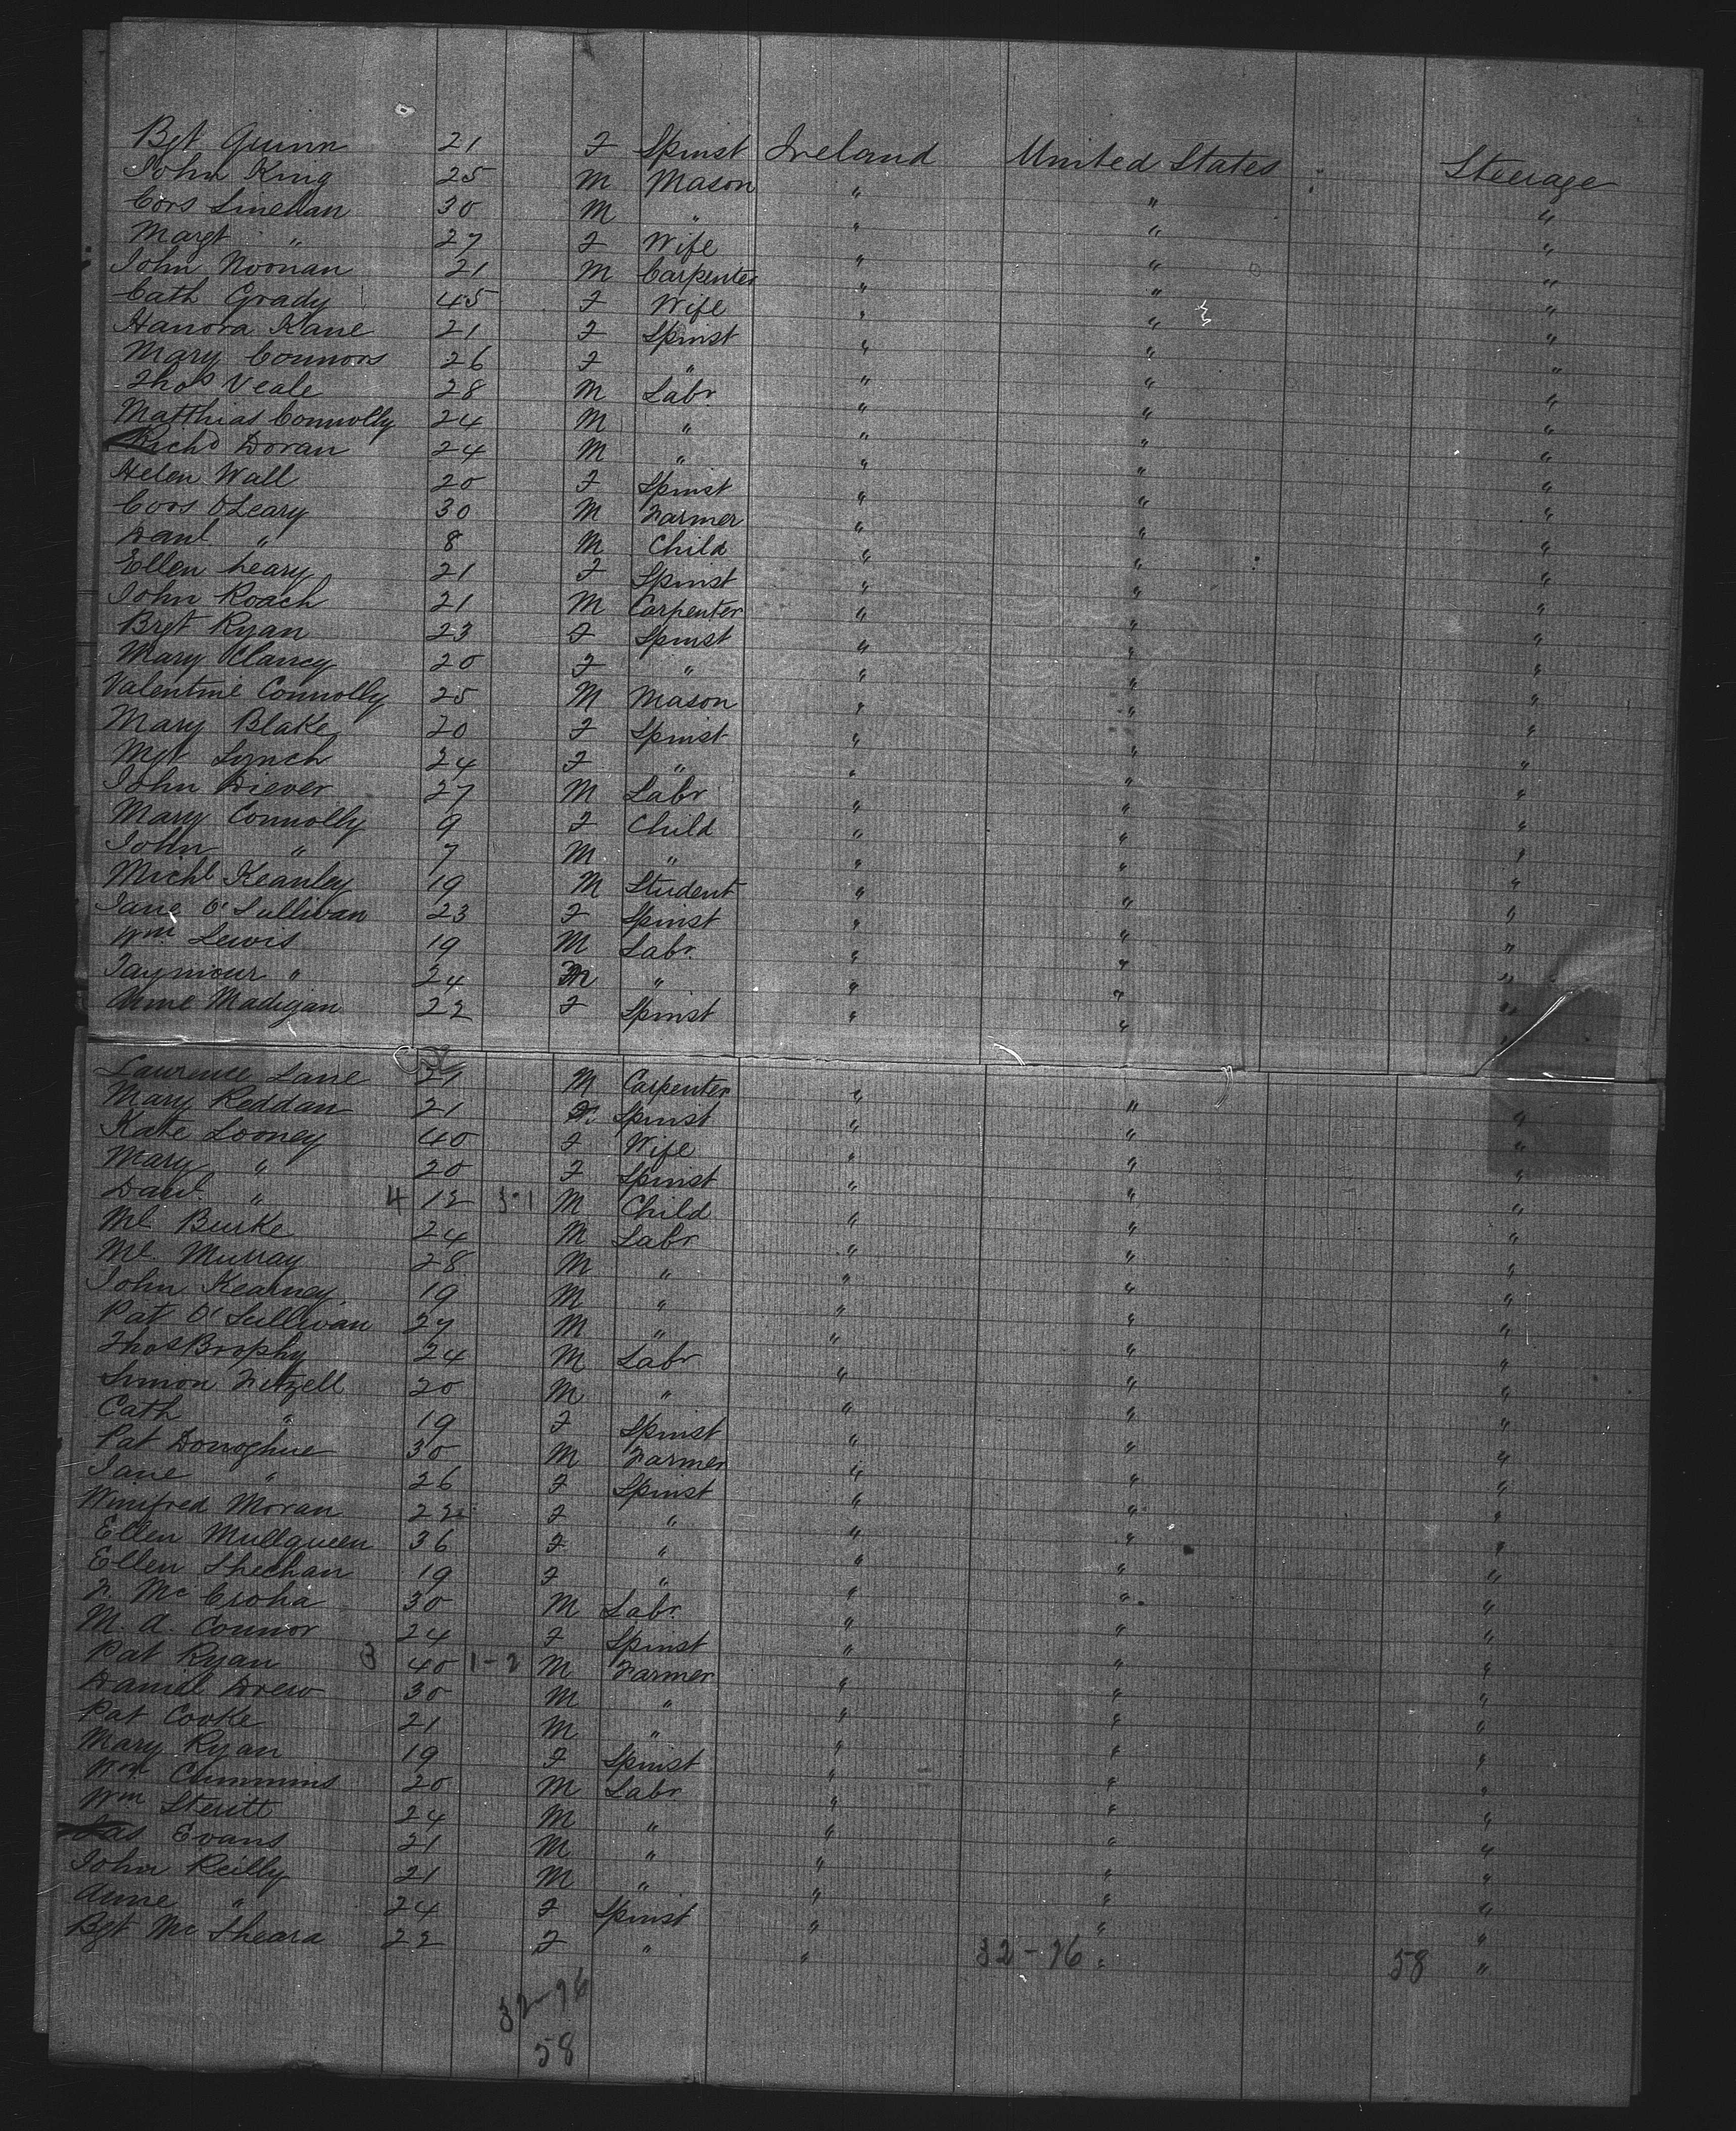 Bgt Quinn 21 F Spinst Ireland United States Steerage
John King 25 M Mason " " "
Cors Linehan 30 M " " " "
Margt " 27 F Wife " " "
John Noonan 21 M Carpenter " " "
Cath Grady 45 F Wife " " "
Hanora Kane 21 F Spinst " " "
Mary Connors 26 F " " " "
Thos Veale 28 M Labr " " "
Matthias Connolly 24 M " " " "
Richd Doran 24 M " " " "
Helen Wall 20 F Spinst " " "
Cors O'Leary 30 M Farmer " " "
Danl. " 8 M Child " " "
Ellen Leary 21 F Spinst " " "
John Roach 21 M Carpenter " " "
Brgt Ryan 23 F Spinst " " "
Mary Clancy 20 F " " " "
Valentine Connolly 25 M Mason " " "
Mary Blake 20 F Spinst " " "
Mgt Lynch 24 F " " " "
John Diever 27 M Labr " " "
Mary Connolly 9 F Child " " "
John " 7 M " " " "
Michl Keanley 19 M Student " " "
Jane O'Sullivan 23 F Spinst " " "
Wm Lewis 19 M Labr. " " "
Taymour " 24 M " " " "
Anne Madigan 22 F Spinst " " "
Lawrence Lane 21 M Carpenter " " "
Mary Reddan 21 F. Spinst " " "
Kate Looney 40 F Wife " " "
Mary " 20 F Spinst " " "
Danl. " 4 12 3-1 M Child " " "
Ml. Burke 24 M Labr " " "
Ml. Murray 28 M " " " "
John Kearney 19 M " " " "
Pat O'Sullivan 27 M " " " "
Thos Brophy 24 M Labr " " "
Simon Fitzell 20 M " " " "
Cath " 19 F Spinst " " "
Pat Donoghue 30 M Farmer " " "
Jane " 26 F Spinst " " "
Winifred Moran 22 F " " " "
Ellen Mullqueen 36 F " " " "
Ellen Sheehan 19 F " " " "
F. McCroha 30 M Labr. " " "
M. A. Connor 24 F Spinst " " "
Pat Ryan 3 40 1-2 M Farmer " " "
Daniel Drew 30 M " " " "
Pat Cooke 21 M " " " "
Mary Ryan 19 F Spinst " " "
Wm Cummins 20 M Labr " " "
Wm Steritt 24 M " " " "
Jas Evans 21 M " " " "
John Reilly 21 M " " " "
Anne " 24 F Spinst " " "
Bgt McSheara 22 F " " 32-26 " 58 "
32-26
58